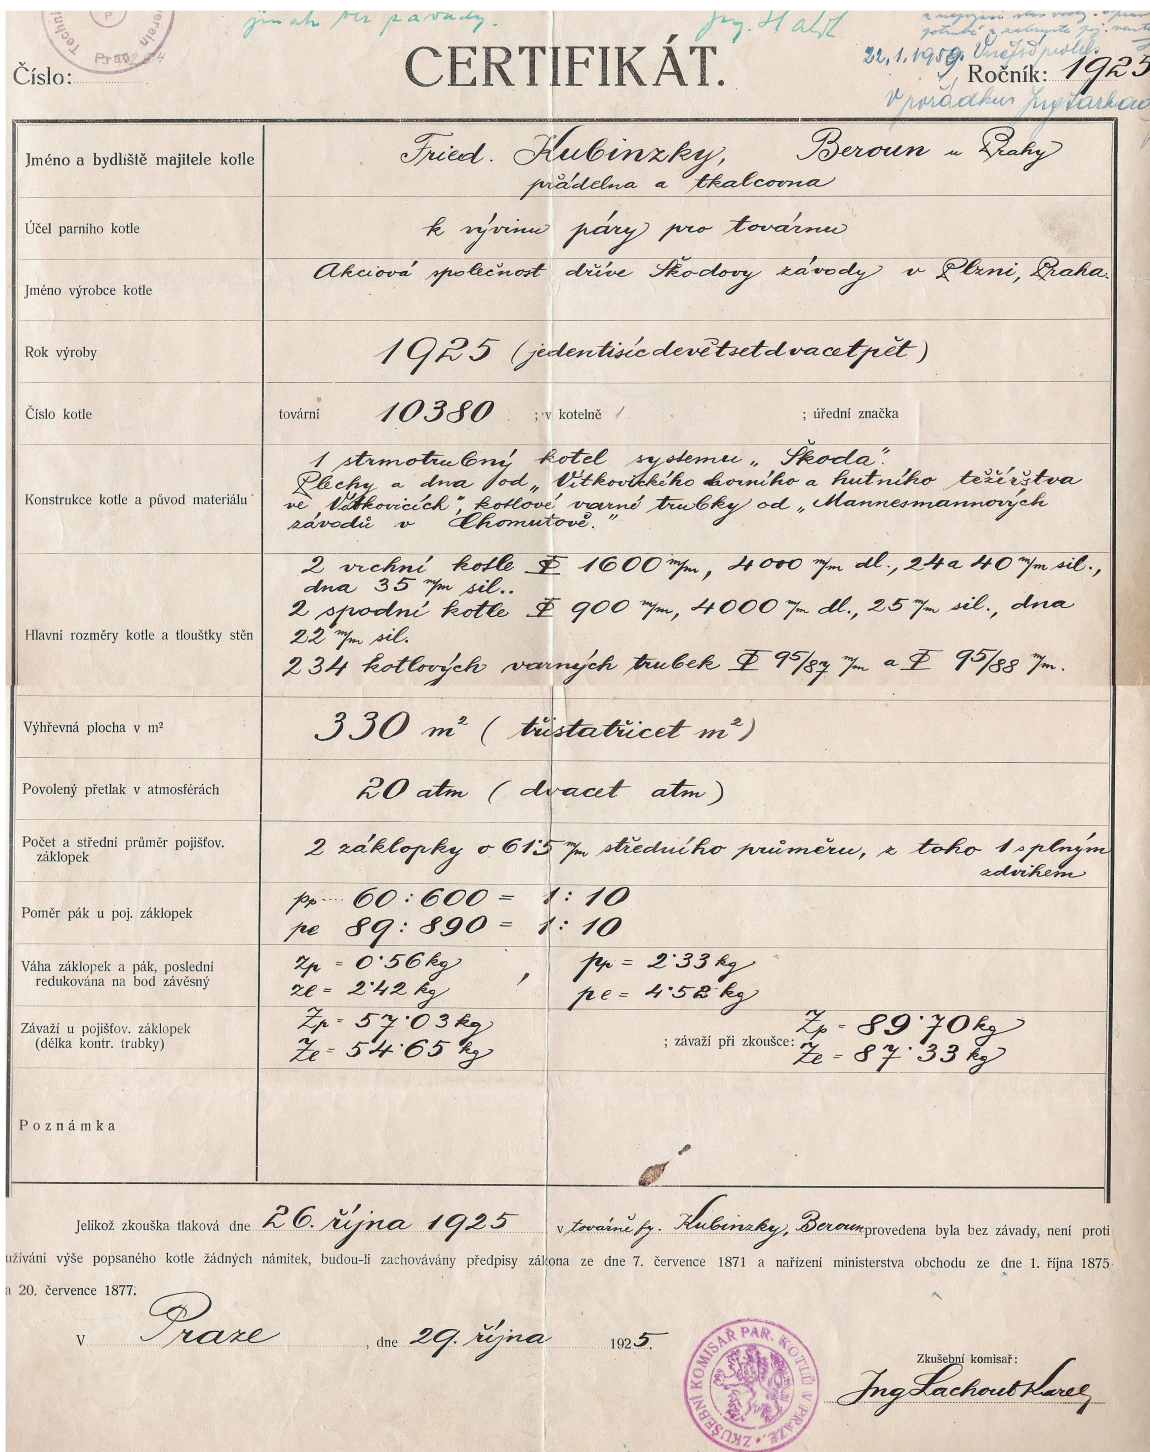 jinak bez závady.
22.1.1959
v pořádku
Číslo:
CERTIFIKÁT.
Ročník: 1925
Jméno a bydliště majitele kotle
Fried. Kubinzky, Beroun u Prahy
přádelna a tkalcovna
Účel parního kotle
k vývinu páry pro továrnu
Jméno výrobce kotle
Akciová společnost dříve Škodovy závody v Plzni, Praha.
Rok výroby
1925 (jedentisícdevětsetdvacetpět)
Číslo kotle
tovární 10380 ; v kotelně 1 ; úřední značka
Konstrukce kotle a původ materiálu
1 strmotrubný kotel systemu „Škoda".
Plechy a dna od „Vítkovického horního a hutního těžířstva
ve Vítkovicích", kotlové varné trubky od „Mannesmannových
závodů v Chomutově."
Hlavní rozměry kotle a tloušťky stěn
2 vrchní kotle Φ 1600 m/m, 4000 m/m dl., 24 a 40 m/m sil.,
dna 35 m/m sil..
2 spodní kotle Φ 900 m/m, 4000 m/m dl., 25 m/m sil., dna
22 m/m sil.
234 kotlových varných trubek Φ 95/87 m/m a Φ 95/88 m/m.
Výhřevná plocha v m²
330 m² (třistatřicet m²)
Povolený přetlak v atmosférách
20 atm (dvacet atm)
Počet a střední průměr pojišťov.
záklopek
2 záklopky o 61·5 m/m středního průměru, z toho 1 s plným
zdvihem
Poměr pák u poj. záklopek
pp 60 : 600 = 1 : 10
pe 89 : 890 = 1 : 10
Váha záklopek a pák, poslední
redukována na bod závěsný
zp = 0·56 kg , pp = 2·33 kg
ze = 2·42 kg pe = 4·52 kg
Závaží u pojišťov. záklopek
(délka kontr. trubky)
Zp = 57·03 kg
Ze = 54·65 kg
; závaží při zkoušce:
Zp = 89·70 kg
Ze = 87·33 kg
Poznámka
Jelikož zkouška tlaková dne 26. října 1925 v továrně fy. Kubinzky, Beroun provedena byla bez závady, není proti
užívání výše popsaného kotle žádných námitek, budou-li zachovávány předpisy zákona ze dne 7. července 1871 a nařízení ministerstva obchodu ze dne 1. října 1875
a 20. července 1877.
V Praze , dne 29. října 1925.
ZKUŠEBNÍ KOMISAŘ PAR. KOTLŮ V PRAZE.
Zkušební komisař:
Ing Lachout Karel